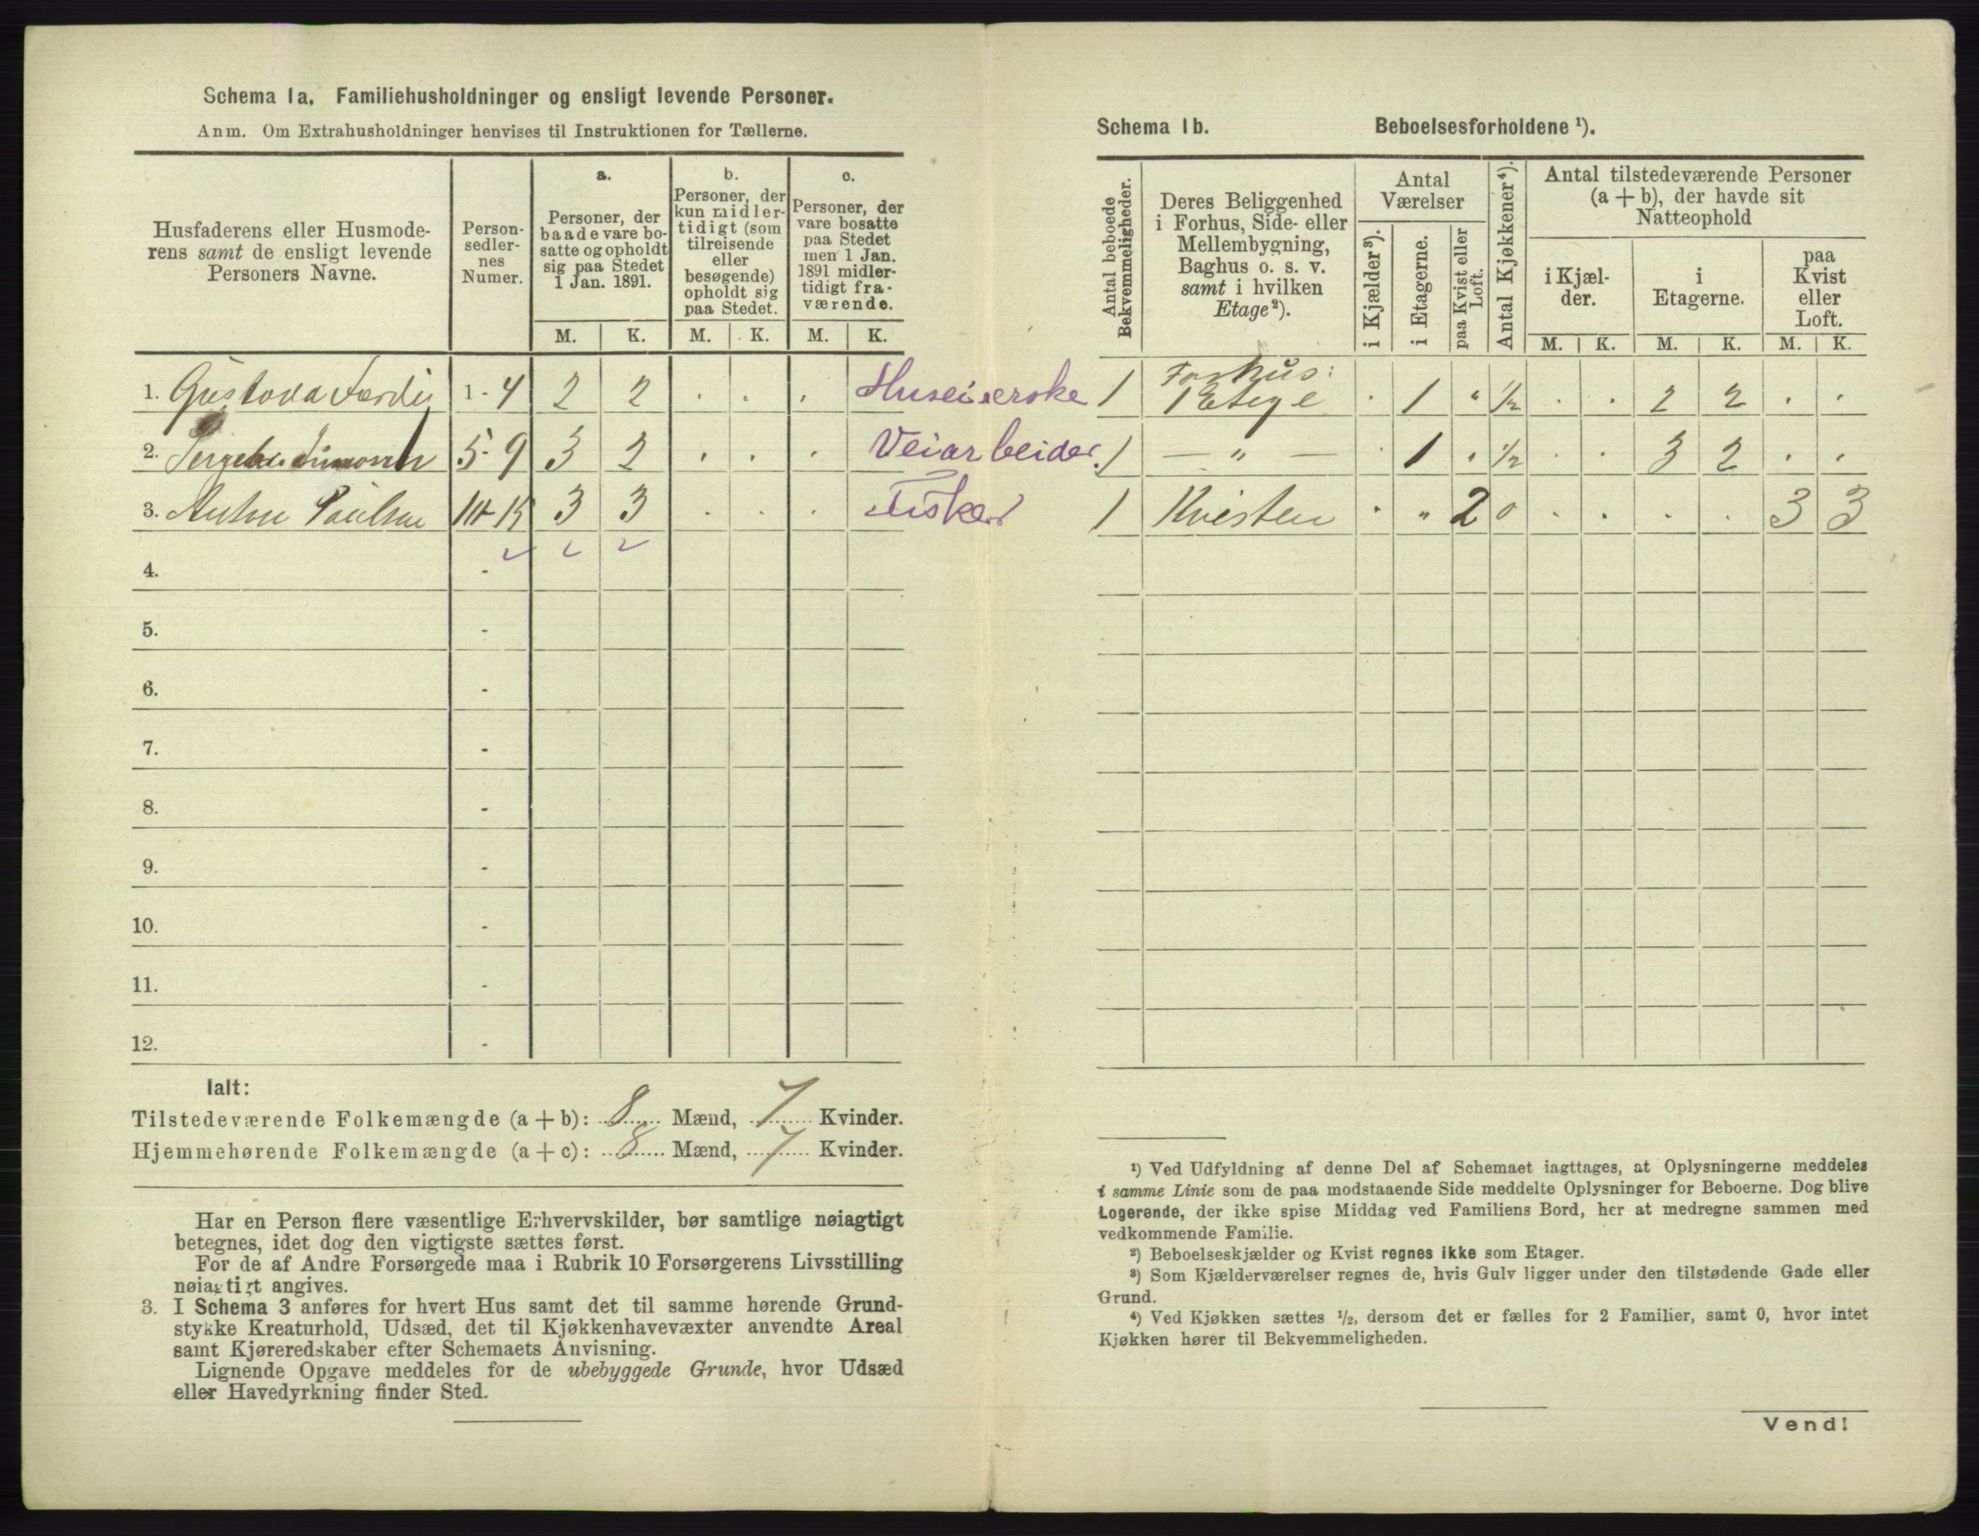 Schema 1a. Familiehusholdninger og ensligt levende Personer.
Anm. Om Extrahusholdninger henvises til Instruktionen for Tællerne.
Husfaderens eller Husmoderens samt de ensligt levende Personers Navne.
Personsedlernes Numer.
a.
Personer, der baade vare bosatte og opholdt sig paa Stedet 1 Jan. 1891.
b.
Personer, der kun midlertidigt (som tilreisende eller besøgende) opholdt sig paa Stedet.
c.
Personer, der vare bosatte paa Stedet men 1 Jan. 1891 midlertidigt fraværende.
M. K. M. K. M. K.
1. Gustava 1 - 4 2 2 . . . Huseierske
2. 5 - 9 3 2 . . . Veiarbeider.
3. Anton Paulsen 10-15 3 3 . . . Fisker
4. -
5. -
6. -
7. -
8. -
9. -
10. -
11. -
12. -
Ialt:
Tilstedeværende Folkemængde (a + b): 8 Mænd, 7 Kvinder.
Hjemmehørende Folkemængde (a + c): 8 Mænd, 7 Kvinder.
Har en Person flere væsentlige Erhvervskilder, bør samtlige nøiagtigt
betegnes, idet dog den vigtigste sættes først.
For de af Andre Forsørgede maa i Rubrik 10 Forsørgerens Livsstilling
nøiagtigt angives.
3. I Schema 3 anføres for hvert Hus samt det til samme hørende Grund-
stykke Kreaturhold, Udsæd, det til Kjøkkenhavevæxter anvendte Areal
samt Kjøreredskaber efter Schemaets Anvisning.
Lignende Opgave meddeles for de ubebyggede Grunde, hvor Udsæd
eller Havedyrkning finder Sted.
Schema 1b. Beboelsesforholdene ¹).
Antal beboede Bekvemmeligheder.
Deres Beliggenhed i Forhus, Side- eller Mellembygning, Baghus o. s. v. samt i hvilken Etage²).
Antal Værelser
i Kjælder³).
i Etagerne.
paa Kvist eller Loft.
Antal Kjøkkener⁴).
Antal tilstedeværende Personer (a + b), der havde sit Natteophold
i Kjælder.
i Etagerne.
paa Kvist eller Loft.
M. K. M. K. M. K.
1 Forhus: 1 Etage . 1 " ½ . . 2 2 . .
1 — " — . 1 " ½ . . 3 2 . .
1 Kvisten . " 2 0 . . . . 3 3
¹) Ved Udfyldning af denne Del af Schemaet iagttages, at Oplysningerne meddeles
i samme Linie som de paa modstaaende Side meddelte Oplysninger for Beboerne. Dog blive
Logerende, der ikke spise Middag ved Familiens Bord, her at medregne sammen med
vedkommende Familie.
²) Beboelseskjælder og Kvist regnes ikke som Etager.
³) Som Kjælderværelser regnes de, hvis Gulv ligger under den tilstødende Gade eller
Grund.
⁴) Ved Kjøkken sættes ½, dersom det er fælles for 2 Familier, samt 0, hvor intet
Kjøkken hører til Bekvemmeligheden.
Vend!